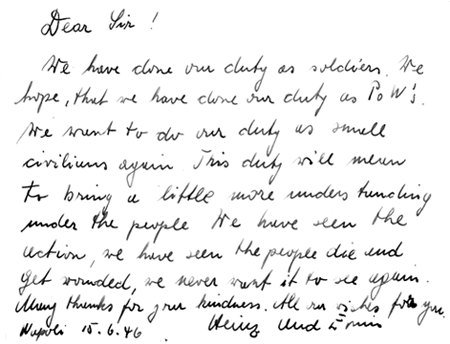 Dear Sir!
We have done our duty as soldiers. We
hope, that we have done our duty as PoW's.
We want to do our duty as small
civilians again. This duty will mean
to bring a little more understanding
under the people We have seen the
action, we have seen the people die and
get wounded, we never want it to see again.
Many thanks for your kindness. All our wishes for you.
Napoli 15.6.46 Heinz und